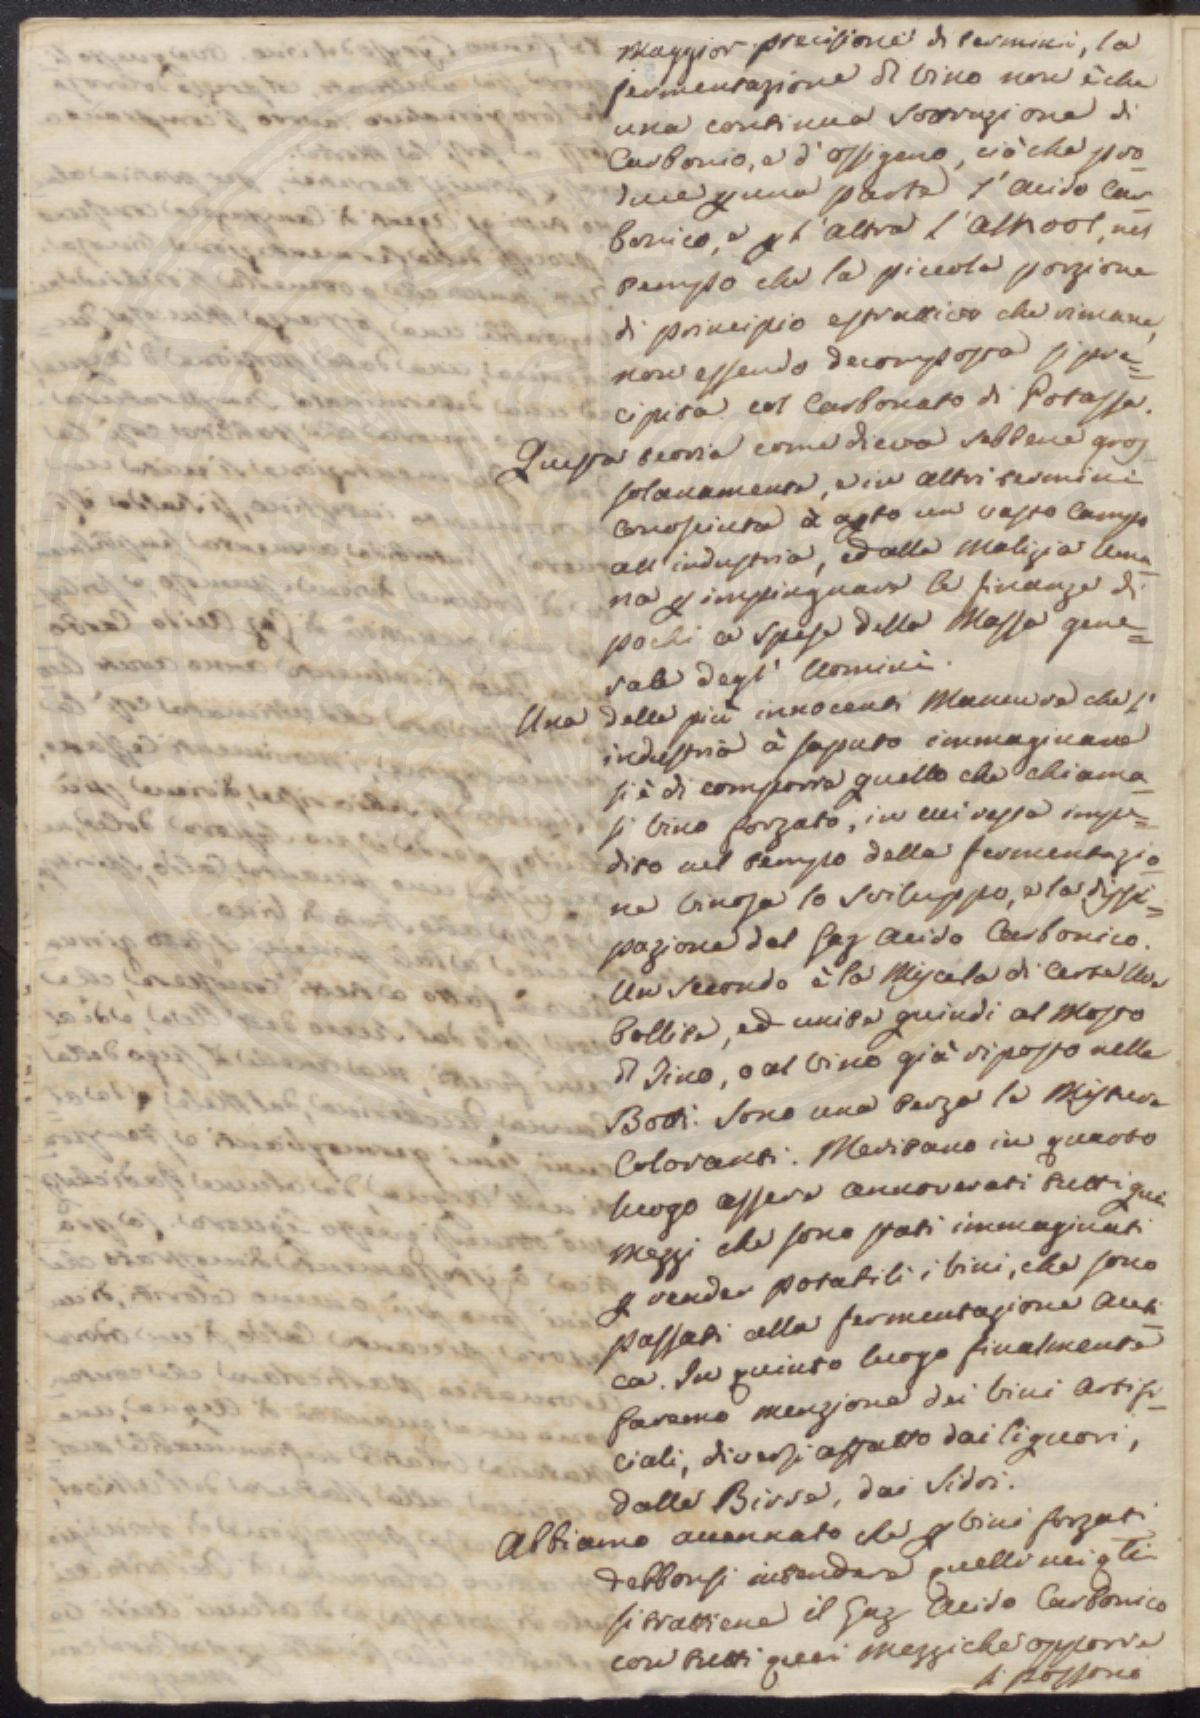 Maggior precisione di termini, la
fermentazione di vino non è che
una continua sottrazione di
Carbonio, e d'ossigeno, ciò che pro-
duce p una parte l'acido Car-
bonico, e p l'altra l'alkool, nel
tempo che la piccola porzione
di principio estrattivo che rimane,
non essendo decomposta si pre=
cipita col Carbonato di Potassa.
Questa teoria come diceva sebbene gros-
solanamente, e in altri termini
conosciuta à apto un vasto Campo
all'industria, ed alla Malizia Uma-
na p impinguare le finanze di
pochi a spese della Massa gene=
rale degl'Uomini.
Una delle più innocenti Manuvre che l'
industria à saputo immaginare
si è di comporre quello che chiama-
si vino forzato, in cui resta impe=
dito nel tempo della fermentazio-
ne vinosa lo sviluppo, e la dissi=
pazione del Gaz acido Carbonico.
Un secondo è la Miscela di certe Uve
bollite, ed unite quindi al Mosto
di Tino, o al vino già riposto nelle
Botti. Sono una terza le Misture
Coloranti. Meritano in quarto
luogo essere annoverati tutti quei
mezzi che sono stati immaginati
p render potabili i vini, che sono
passati alla fermentazione aceti-
ca. In quinto luogo finalmente
faremo menzione dei vini artifi-
ciali, diversi affatto dai liquori,
dalle Birre, dai Sidri.
Abbiamo accennato che p vini forzati
debbonsi intendere quelli nei qli
si trattiene il Gaz Acido Carbonico
con tutti quei mezzi che opporre
si possono